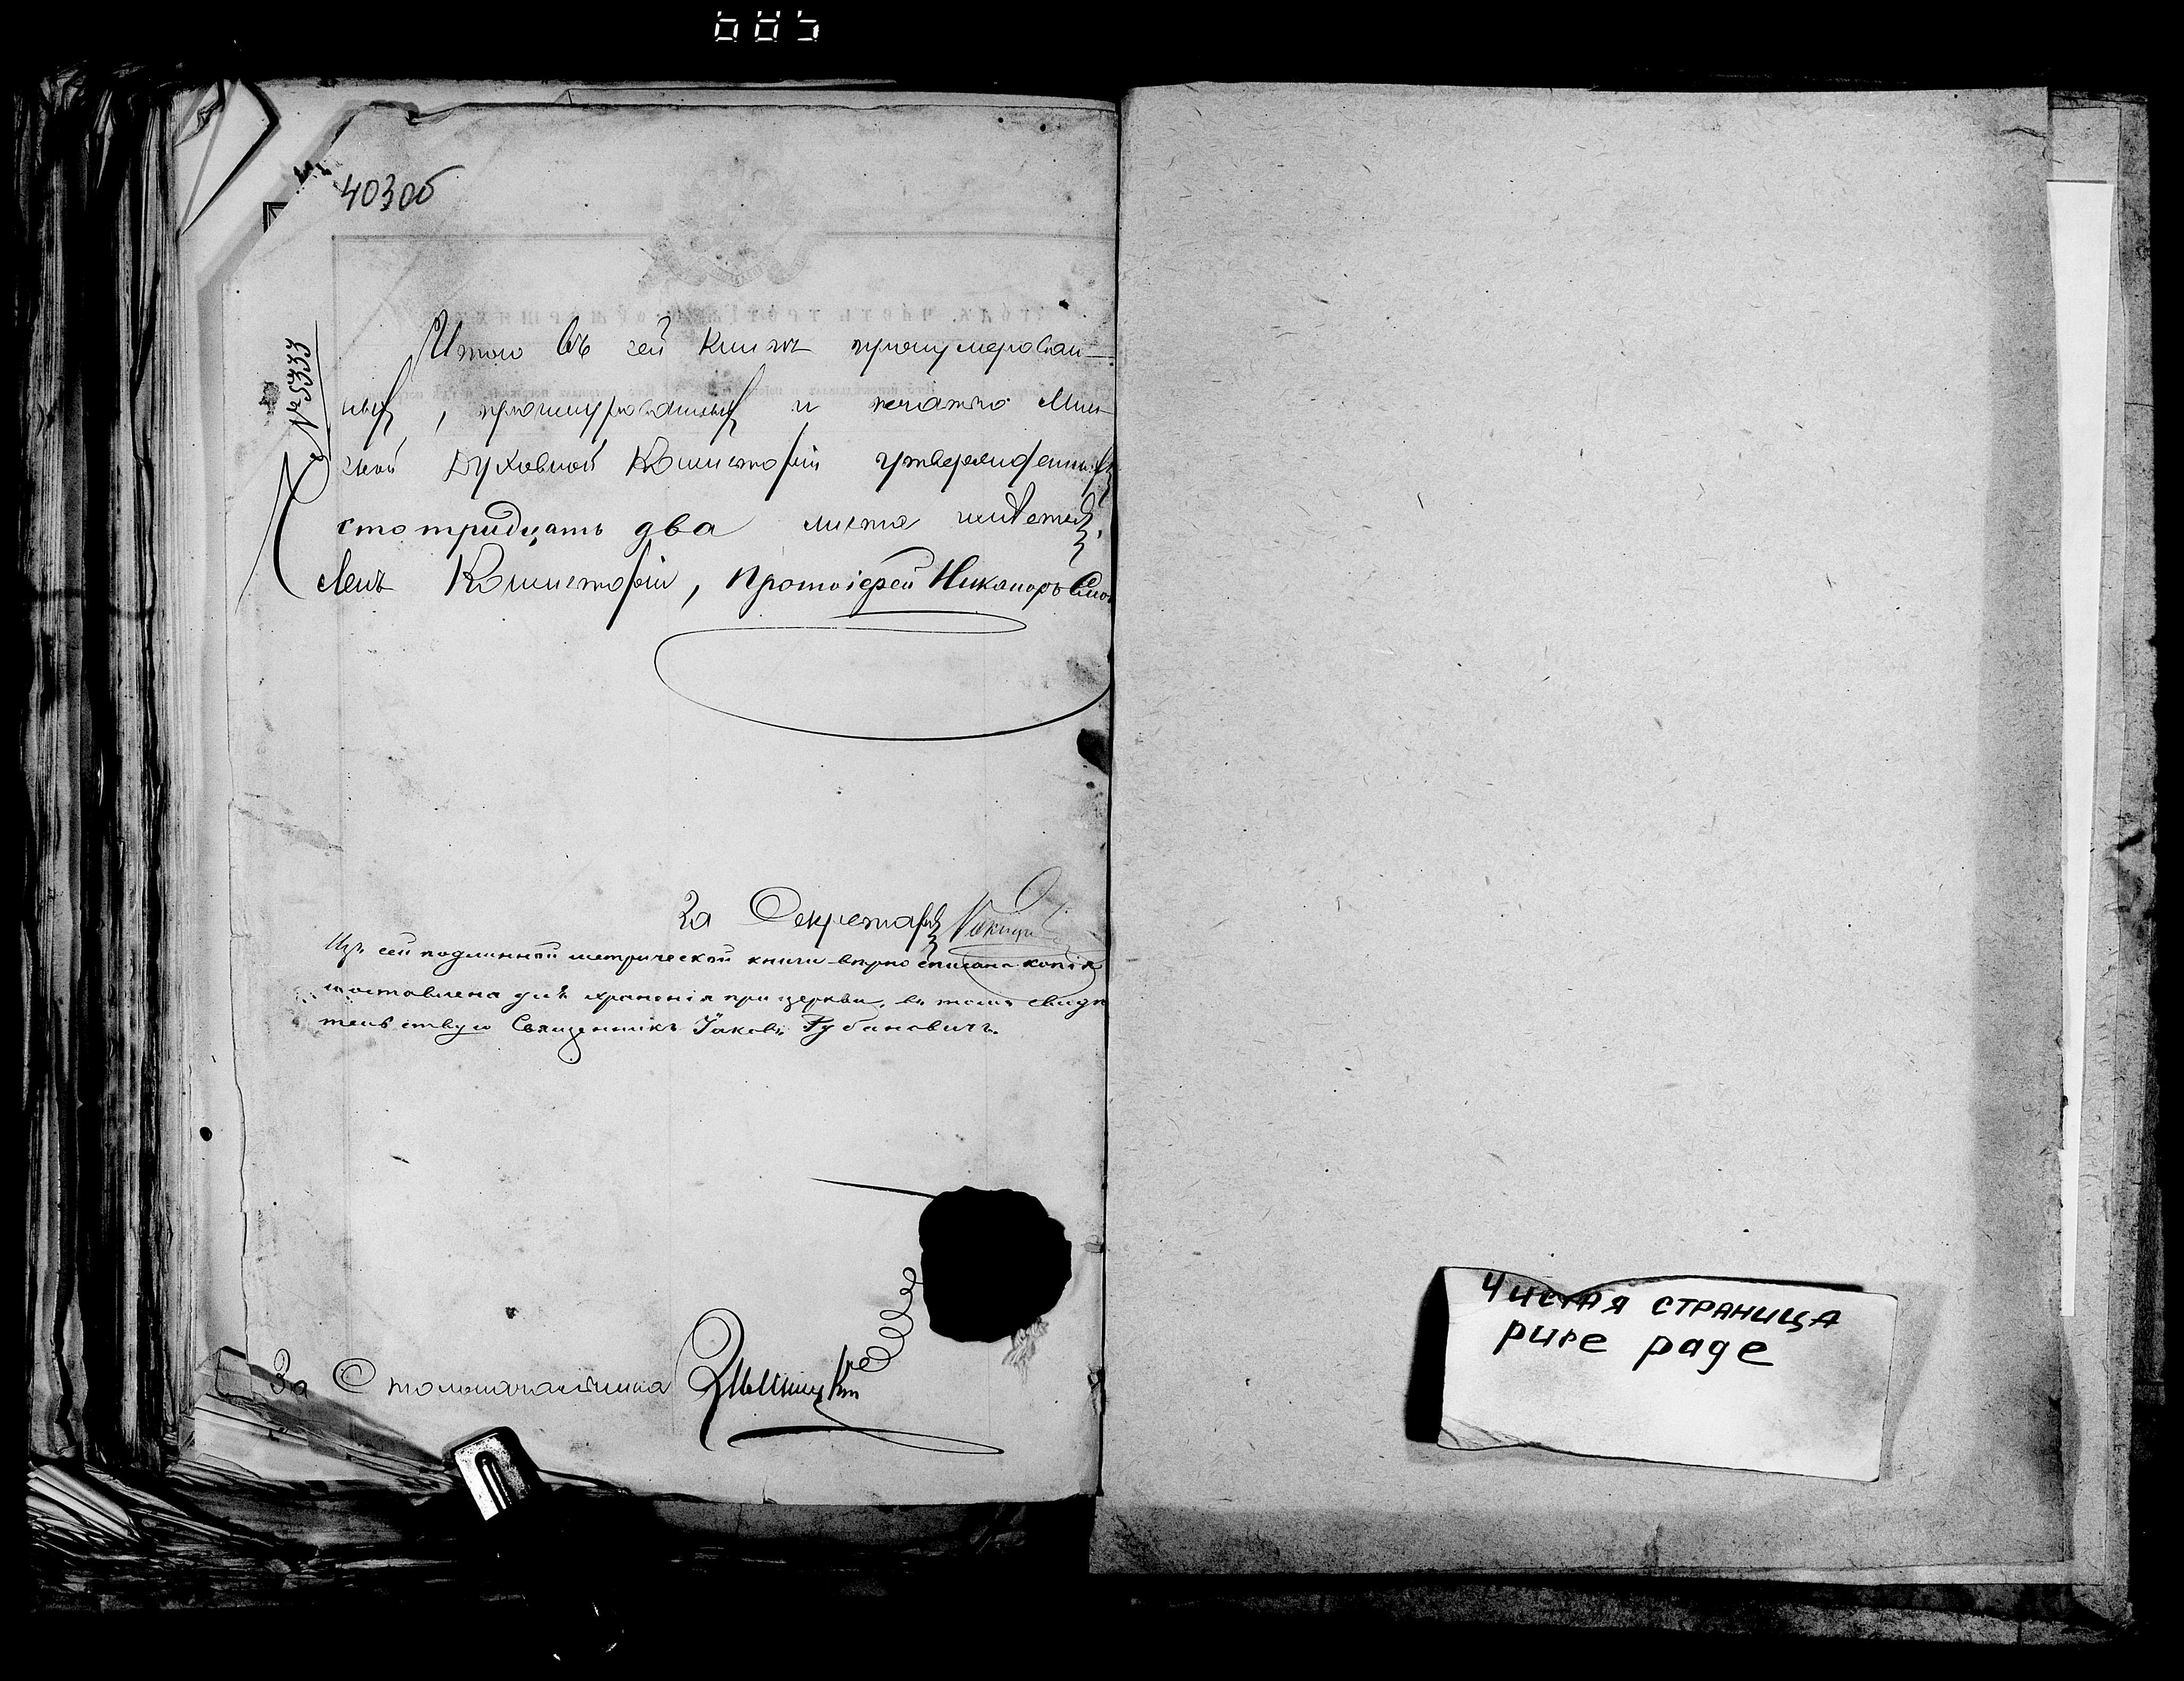 403 об
№ 5333
Итого въ сей книгѣ пронумерован-
ныхъ, прошнурованныхъ и печатью Мин-
ской Духовной Консисторіи утвержденныхъ
сто тридцать два листа имѣется.
Членъ Консисторіи, Протоіерей Никаноръ
За Секретаря
Изъ сей подлинной метрической книги вѣрно списана копія
и оставлена для храненія при церкви, въ томъ свидѣ
тельствую Священникъ Іаковъ Рубановичъ.
За Столоначальника
Чистая страница
pure page